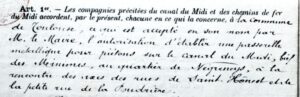 Art. 1er. — Les compagnies précitées du canal du Midi et des chemins de fer
du Midi accordent, par le présent, chacune en ce qui la concerne, à la commune
de Toulouse, ce qui est accepté en son nom par
M. le Maire, l'autorisation d'établir une passerelle
métallique pour piétons sur le canal du Midi, bief
des Minimes, au quartier de Negreneys, à la
rencontre des axes des rues de Saint Honest et de
la petite rue de la Poudrière.